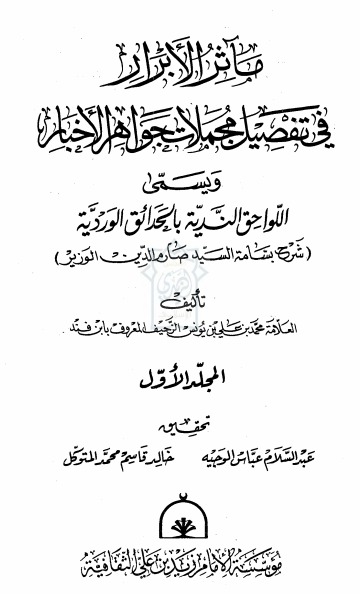 مآثر الأبرار
في تفصيل مجملات جواهر الأخبار
ويسمى
اللواحق الندية بالحدائق الوردية
(شرح بسامة السيد صارم الدين الوزير)
تأليف
العلامة محمد بن علي بن يونس الزحيف المعروف بابن فند
المجلد الأول
تحقيق
عبد السلام عباس الوجيه خالد قاسم محمد المتوكل
مؤسسة الإمام زيد بن علي الثقافية